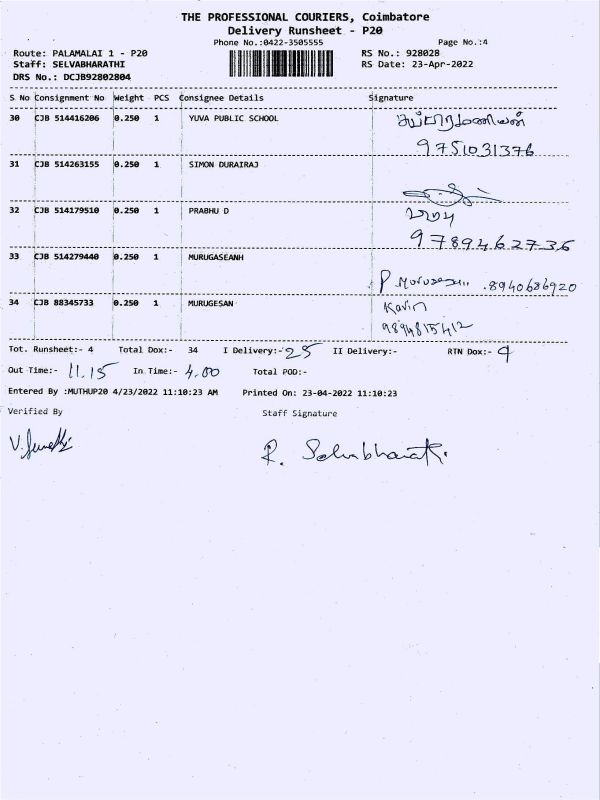 THE PROFESSIONAL COURIERS, Coimbatore
Delivery Runsheet - P20
Phone No.:0422-3505555
Page No.:4
Route: PALAMALAI 1 - P20
RS No.: 928028
Staff: SELVABHARATHI
RS Date: 23-Apr-2022
DRS No.: DCJB92802804
S No Consignment No Weight PCS Consignee Details Signature
30 CJB 514416206 0.250 1 YUVA PUBLIC SCHOOL சுப்பிரமணியன்
9751031376
31 CJB 514263155 0.250 1 SIMON DURAIRAJ
32 CJB 514179510 0.250 1 PRABHU D பிரபு
9789462736
33 CJB 514279440 0.250 1 MURUGASEANH
P 8940686920
34 CJB 88345733 0.250 1 MURUGESAN Kavin
9894815412
Tot. Runsheet:- 4 Total Dox:- 34 I Delivery:- 25 II Delivery:- RTN Dox:- 9
Out Time:- 11.15 In Time:- 4.00 Total POD:-
Entered By :MUTHUP20 4/23/2022 11:10:23 AM Printed On: 23-04-2022 11:10:23
Verified By Staff Signature
R. Selvabharathi.